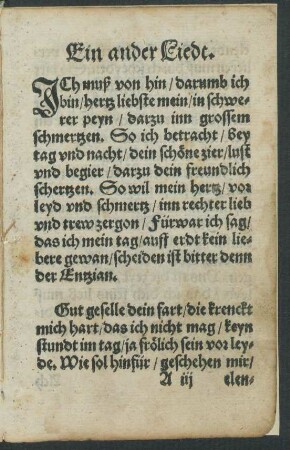 Ein ander Liedt.
ICh muß von hin/darumb ich
bin/hertz liebste mein/in schwe-
rer peyn / darzu inn grossem
schmertzen. So ich betracht/Bey
tag vnd nacht/dein schöne zier/lust
vnd begier/darzu dein freundlich
schertzen. So wil mein hertz/vor
leyd vnd schmertz/inn rechter lieb
vnd trew zergon/Fürwar ich sag/
das ich mein tag/auff erdt kein lie-
bere gewan/scheiden ist bitter denn
der Entzian.
Gut geselle dein fart/die krenckt
mich hart/das ich nicht mag/keyn
stundt im tag/ja frölich sein vor ley-
de. Wie sol hinfür/geschehen mir/
A iij elen-